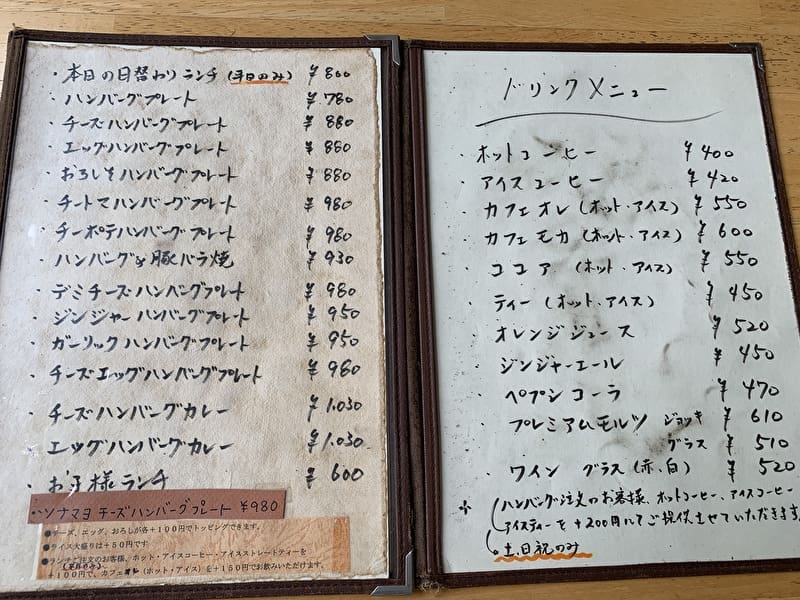 ・本日の日替わりランチ(平日のみ) ¥800
・ハンバーグプレート ¥780
・チーズハンバーグプレート ¥880
・エッグハンバーグプレート ¥880
・おろしそハンバーグプレート ¥880
・チートマハンバーグプレート ¥980
・チーポテハンバーグプレート ¥980
・ハンバーグ&豚バラ焼 ¥930
・デミチーズハンバーグプレート ¥980
・ジンジャーハンバーグプレート ¥950
・ガーリックハンバーグプレート ¥950
・チーズエッグハンバーグプレート ¥980
・チーズハンバーグカレー ¥1.030
・エッグハンバーグカレー ¥1.030
・お子様ランチ ¥600
ツナマヨ チーズハンバーグプレート ¥980
●チーズ、エッグ、おろしが各+100円でトッピングできます。
●ライス大盛りは+50円です
●ランチご注文のお客様、ホット・アイスコーヒー・アイスストレートティーを
(平日のみ)
+100円で、カフェオレ(ホット・アイス)を+150円でお飲みいただけます。
ドリンクメニュー
・ホットコーヒー ¥400
・アイスコーヒー ¥420
・カフェオレ(ホット・アイス) ¥550
・カフェモカ(ホット・アイス) ¥600
・ココア(ホット・アイス) ¥550
・ティー(ホット・アイス) ¥450
・オレンジジュース ¥520
・ジンジャーエール ¥450
・ペプシコーラ ¥470
・プレミアムモルツ ジョッキ ¥610
グラス ¥510
・ワイン グラス(赤、白) ¥520
ハンバーグ注文のお客様、ホットコーヒー、アイスコーヒー
アイスティーを+200円にてご提供させていただきます。
土日祝のみ